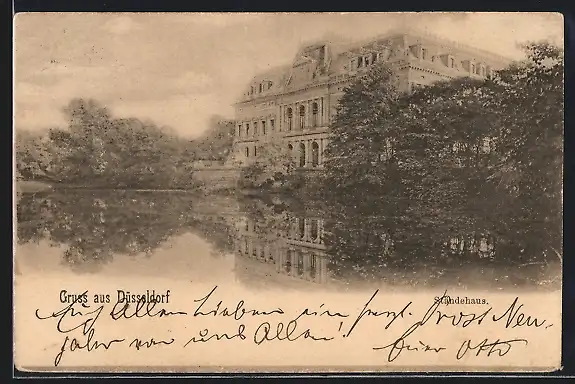 Gruss aus Düsseldorf
Ständehaus.
Euch Allen Lieben ein herzl. Prost Neu-
jahr von uns Allen!
Euer Otto